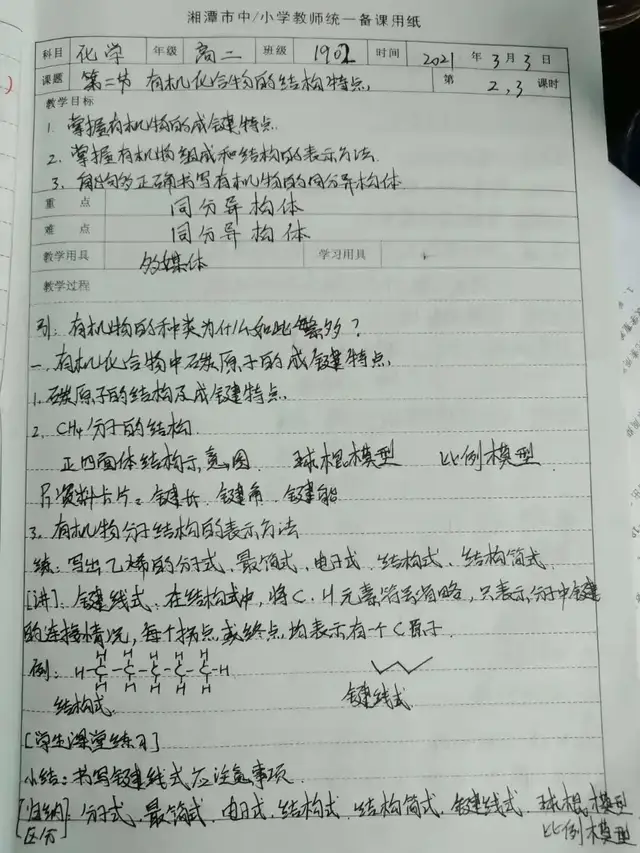 湘潭市中/小学教师统一备课用纸
科目 化学 年级 高二 班级 1902 时间 2021 年 3 月 3 日
课题 第二节 有机化合物的结构特点 第 2,3 课时
教学目标
1. 掌握有机物的成键特点
2. 掌握有机物组成和结构的表示方法
3. 能够正确书写有机物的同分异构体
重点 同分异构体
难点 同分异构体
教学用具 多媒体 学习用具
教学过程
引: 有机物的种类为什么如此繁多?
一. 有机化合物中碳原子的成键特点
1. 碳原子的结构及成键特点
2. CH4分子的结构
正四面体结构示意图 球棍模型 比例模型
资料卡片: 键长 键角 键能
3. 有机物分子结构的表示方法
练: 写出乙烯的分子式、最简式、电子式、结构式、结构简式
[讲]: 键线式: 在结构式中, 将C、H元素符号省略, 只表示分子中键
的连接情况, 每个拐点或终点均表示有一个C原子.
例: H H H H H
H-C-C-C-C-C-H
H H H H H
结构式 键线式
[学生课堂练习]
小结: 书写键线式应注意事项.
[归纳]: 分子式、最简式、电子式、结构式、结构简式、键线式 球棍模型
区分 比例模型